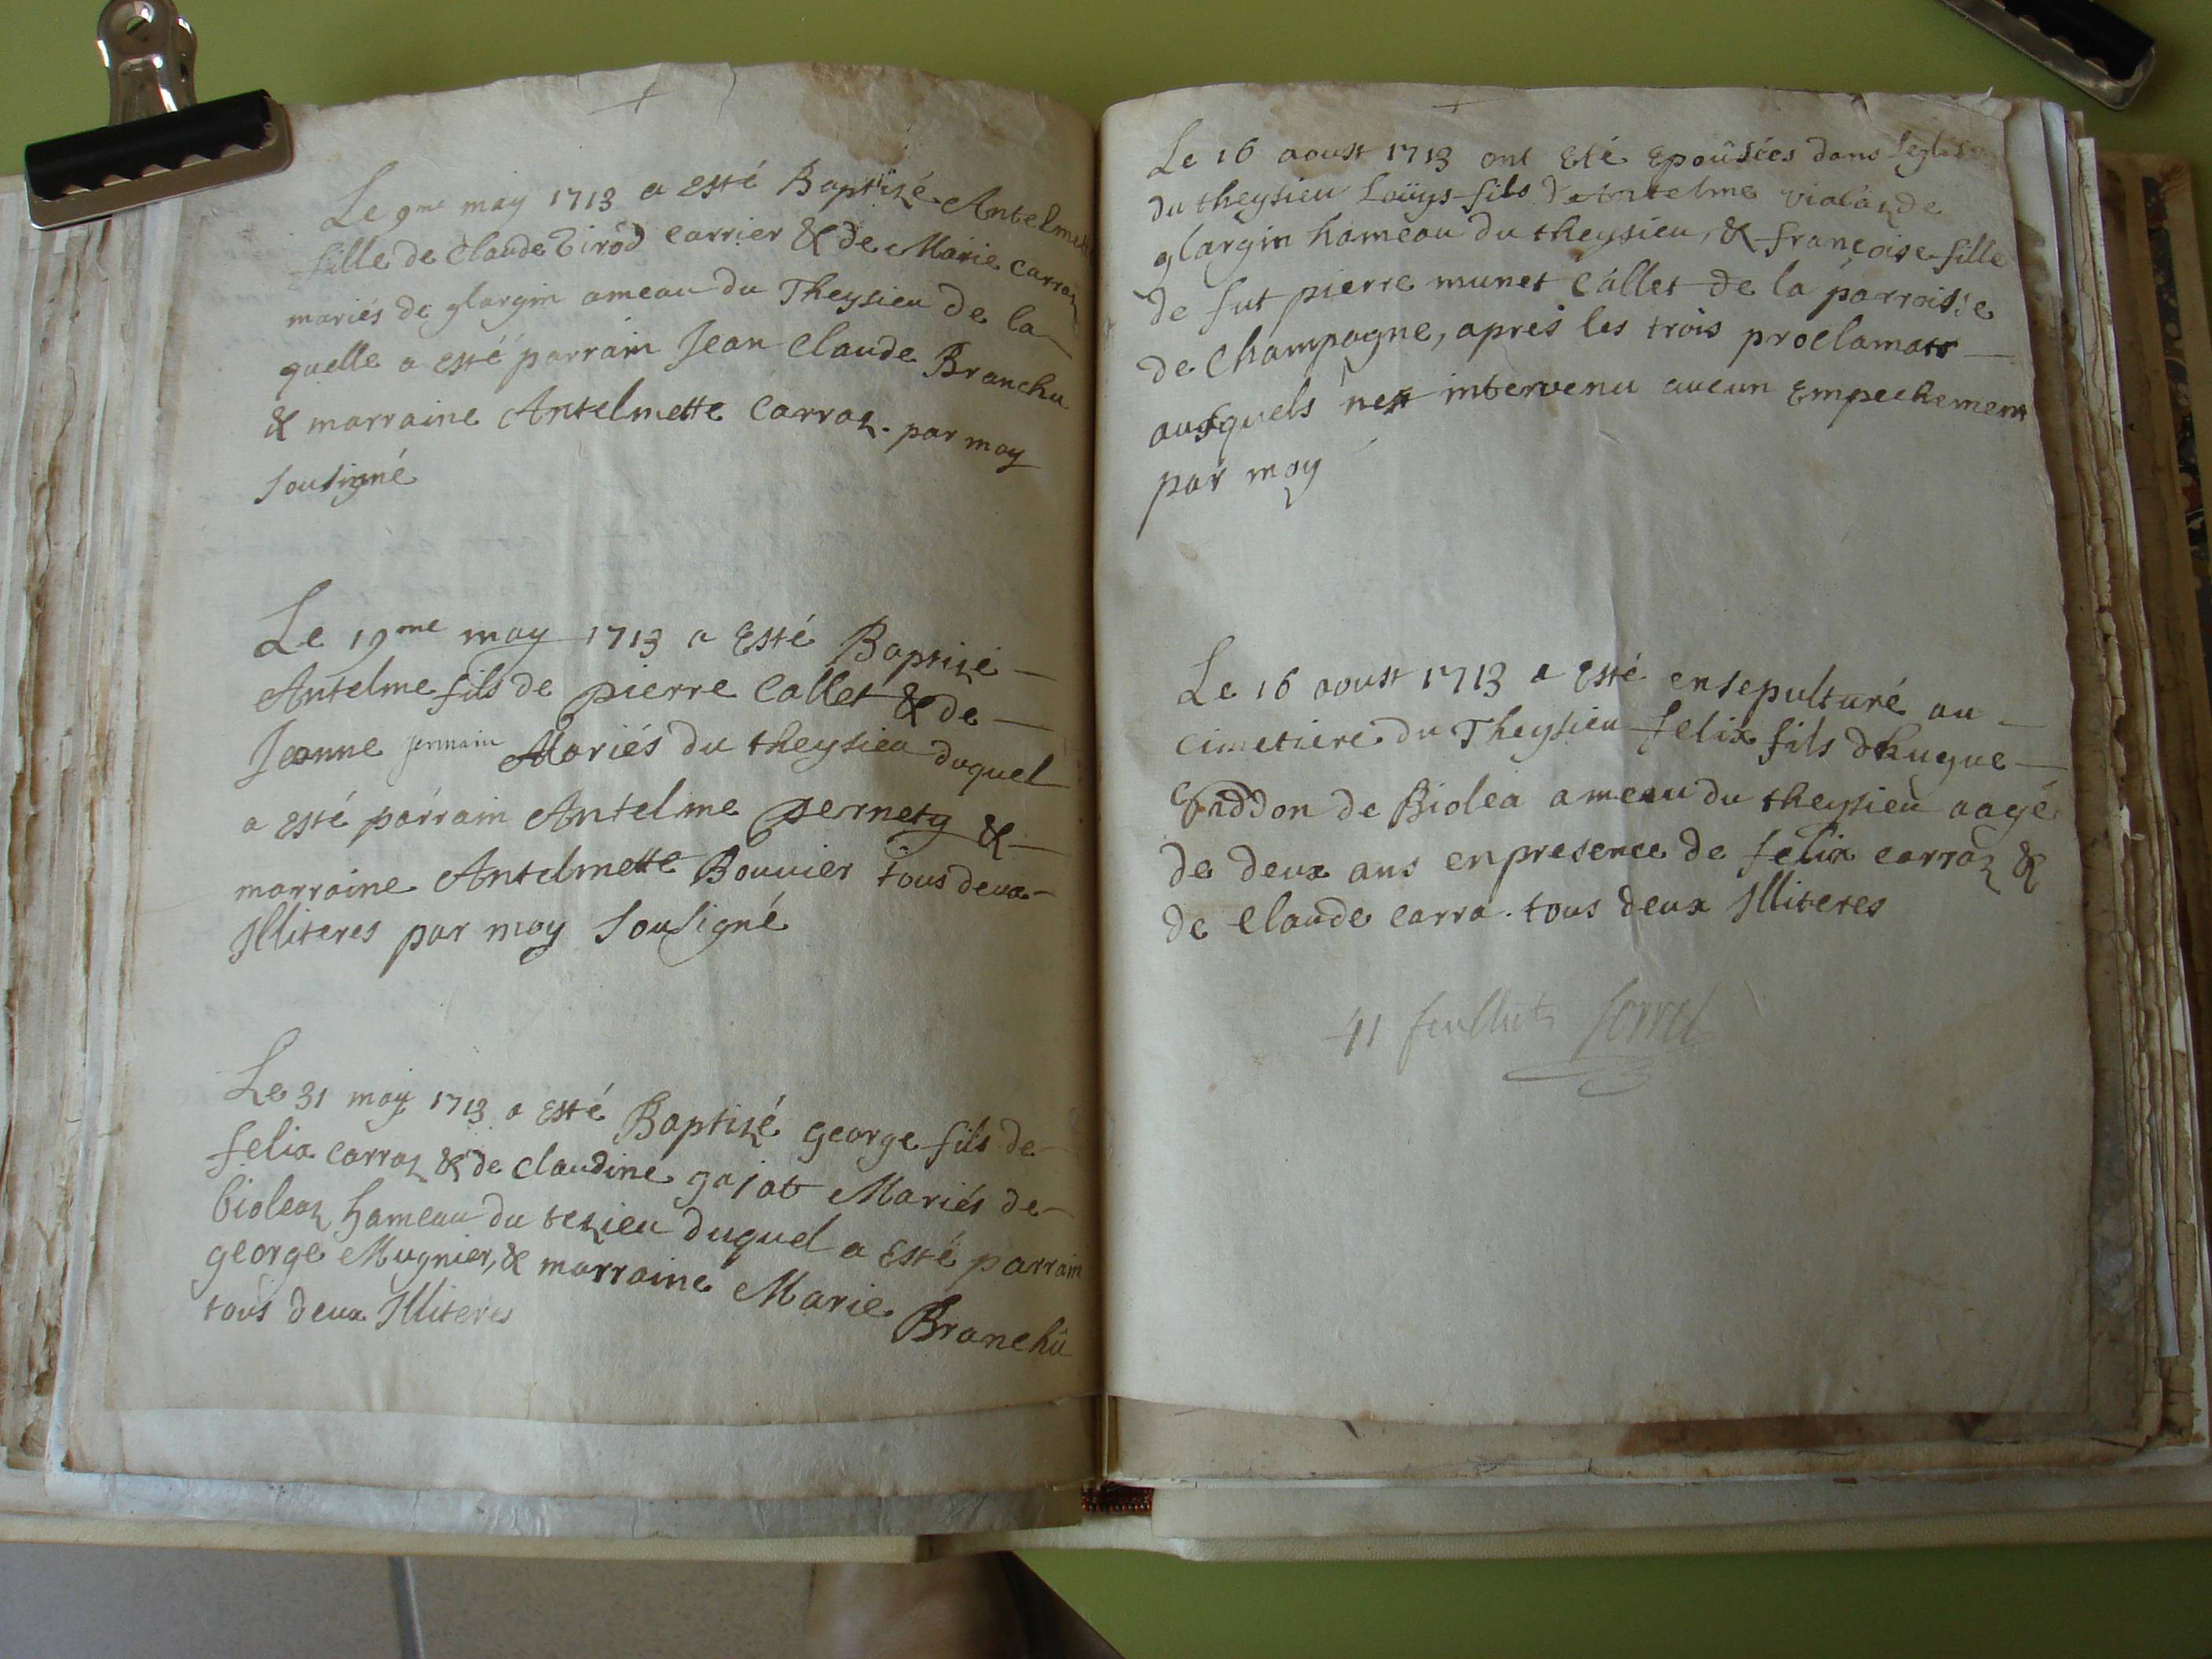 Le 9me may 1713 a esté Baptizé Antelmette
fille de Claude Tirod carrier & de Marie carraz
mariés de glargin ameau du Theysieu de la
quelle a esté parrain Jean Claude Branchu
& marraine Antelmette Carraz. par moy
sousigné
Le 19me may 1713 a Esté Baptizé
Antelme fils de pierre Callet & de
Jeanne Jennain Mariés du theysieu duquel
a esté parrain Antelme pernety &
marraine Antelmette Bouvier tous deux
Illiteres par moy Sousigné
Le 31 may 1713 a Esté Baptizé george fils de
felix carraz & de claudine gajat Mariés de
bioleaz hameau du tezieu duquel a Esté parrain
george Mugnier, & marraine Marie Branchû
tous deux Illiteres
Le 16 aoust 1713 ont Eté Epoûsées dans leglise
du theysieu Loüys fils d'Antelme violaz de
glargin hameau du theysieu, & françoise fille
de fut pierre munet Callet de la parroisse
de Champagne, apres les trois proclamats
ausquels nest intervenu aucun Empechement
par moy
Le 16 aoust 1713 a Esté ensepulturé au
cimetiere du Theysieu felix fils d'hugue
de Biolea ameau du theysieu aagé
de deux ans en presence de felix carraz &
de Claude carra. tous deux Illiteres